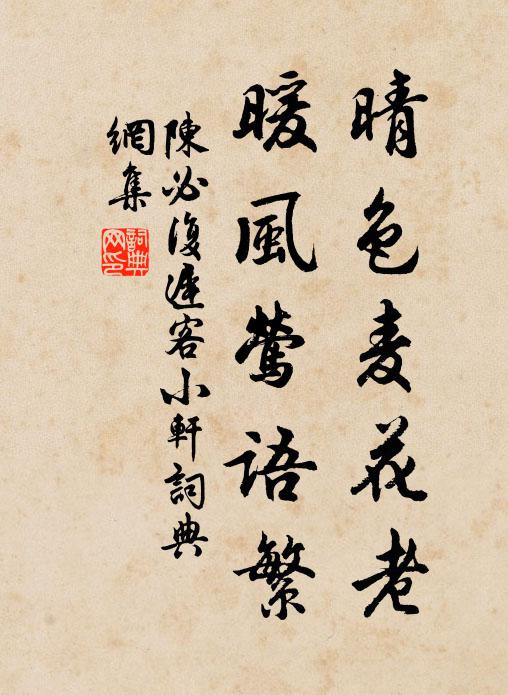 晴色麦花老
暖風鶯語繁
陳必復遲客小軒詞典
網集
詞典
网印